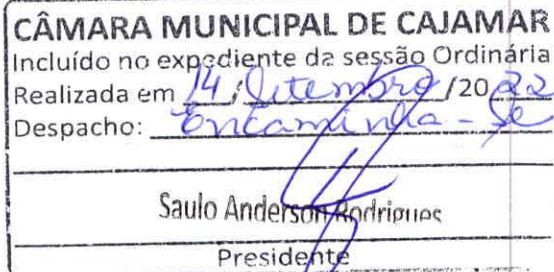 CÂMARA MUNICIPAL DE CAJAMAR
Incluído no expediente da sessão Ordinária
Realizada em 14 / Setembro /20 22
Despacho: Encaminha-se
Saulo Anderson Rodrigues
Presidente